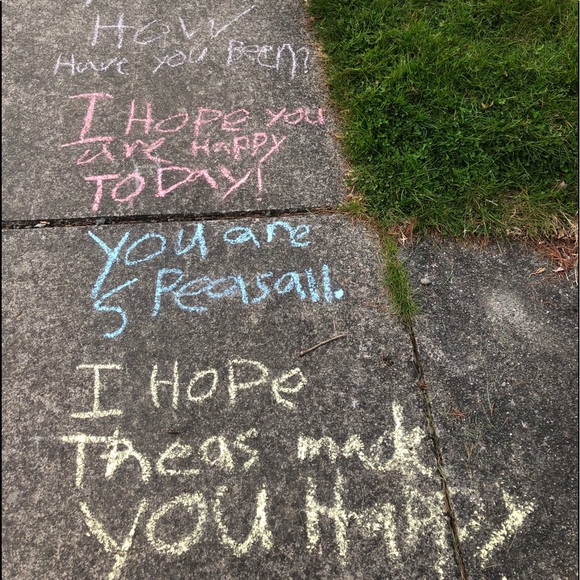 How
Have you Been?
I Hope you
are Happy
TODay!
you are
SPeasall.
I HoPe
Theas made
YOU Happy